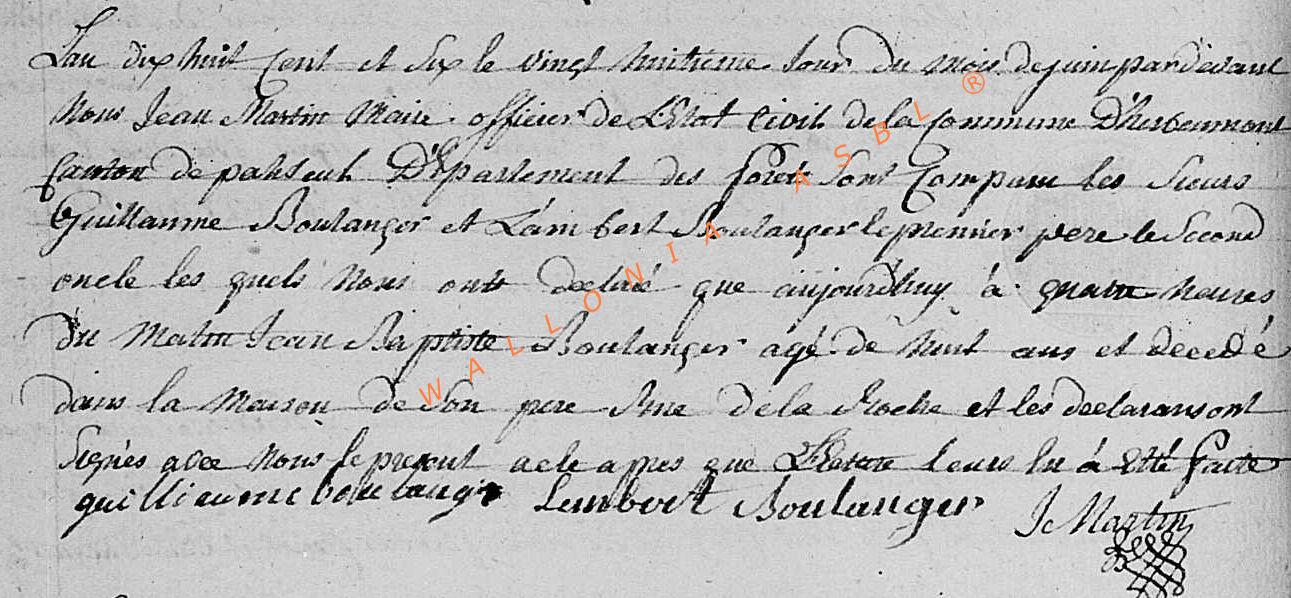 Lan dix huit Cent et Six le vingt huitieme Jour du Mois de juin par devant
Nous Jean Martin Maire officier de L'Etat Civil de la Commune D'herbeumont
Canton de paliseul Département des forets Sont Comparu les Sieurs
Guillaume Boulanger et Lambert Boulanger le premier pere le Second
oncle les quels Nous ont declaré que aujourd'huy à quatre heures
du Matin Jean Baptiste Boulanger agé de huit ans et decedé
dans la Maison de Son pere Rue de la Roche et les declarans ont
Signés avec Nous le present acte apres que Lecture leurs en à Eté faite
guillieaume boulanger Lambert Boulanger J Martin
WALLONIA ASBL ®